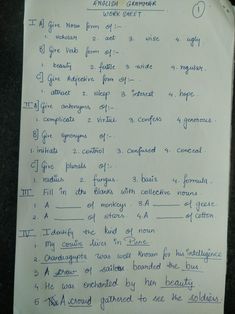 ENGLISH GRAMMAR
WORK SHEET
1
I A] Give Noun form of :-
1. scholar 2. act 3. wise 4. ugly
B] Give Verb form of :-
1. beauty 2. fertile 3. wide 4. regular.
C] Give Adjective form of :-
1. attract 2. weep 3. Interest 4. hope.
II A] Give antonyms of :-
1. complicate 2. virtue 3. Confess 4. generous
B] Give Synonyms of :-
1. initiate 2. control 3. confused 4. conceal
C] Give plurals of :-
1. radius 2. fungus 3. basis 4. formula.
III Fill in the blanks with collective nouns
1. A ______ of monkeys 3. A ______ of geese.
2. A ______ of stars 4. A ______ of cotton
IV Identify the kind of noun
1. My cousin lives in Pune.
2. Chandragupta was well known for his intelligence
3. A crew of sailors boarded the bus.
4. He was enchanted by her beauty
5 The A crowd gathered to see the soldiers.